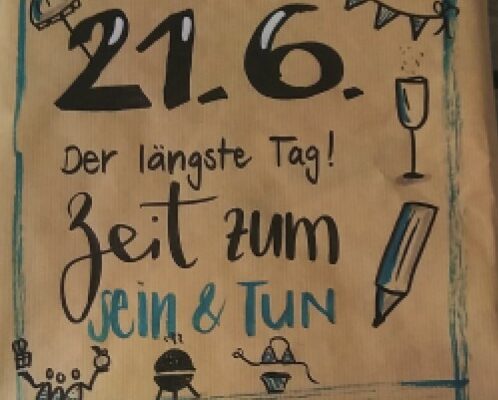 21.6.
Der längste Tag!
Zeit zum
sein & TUN